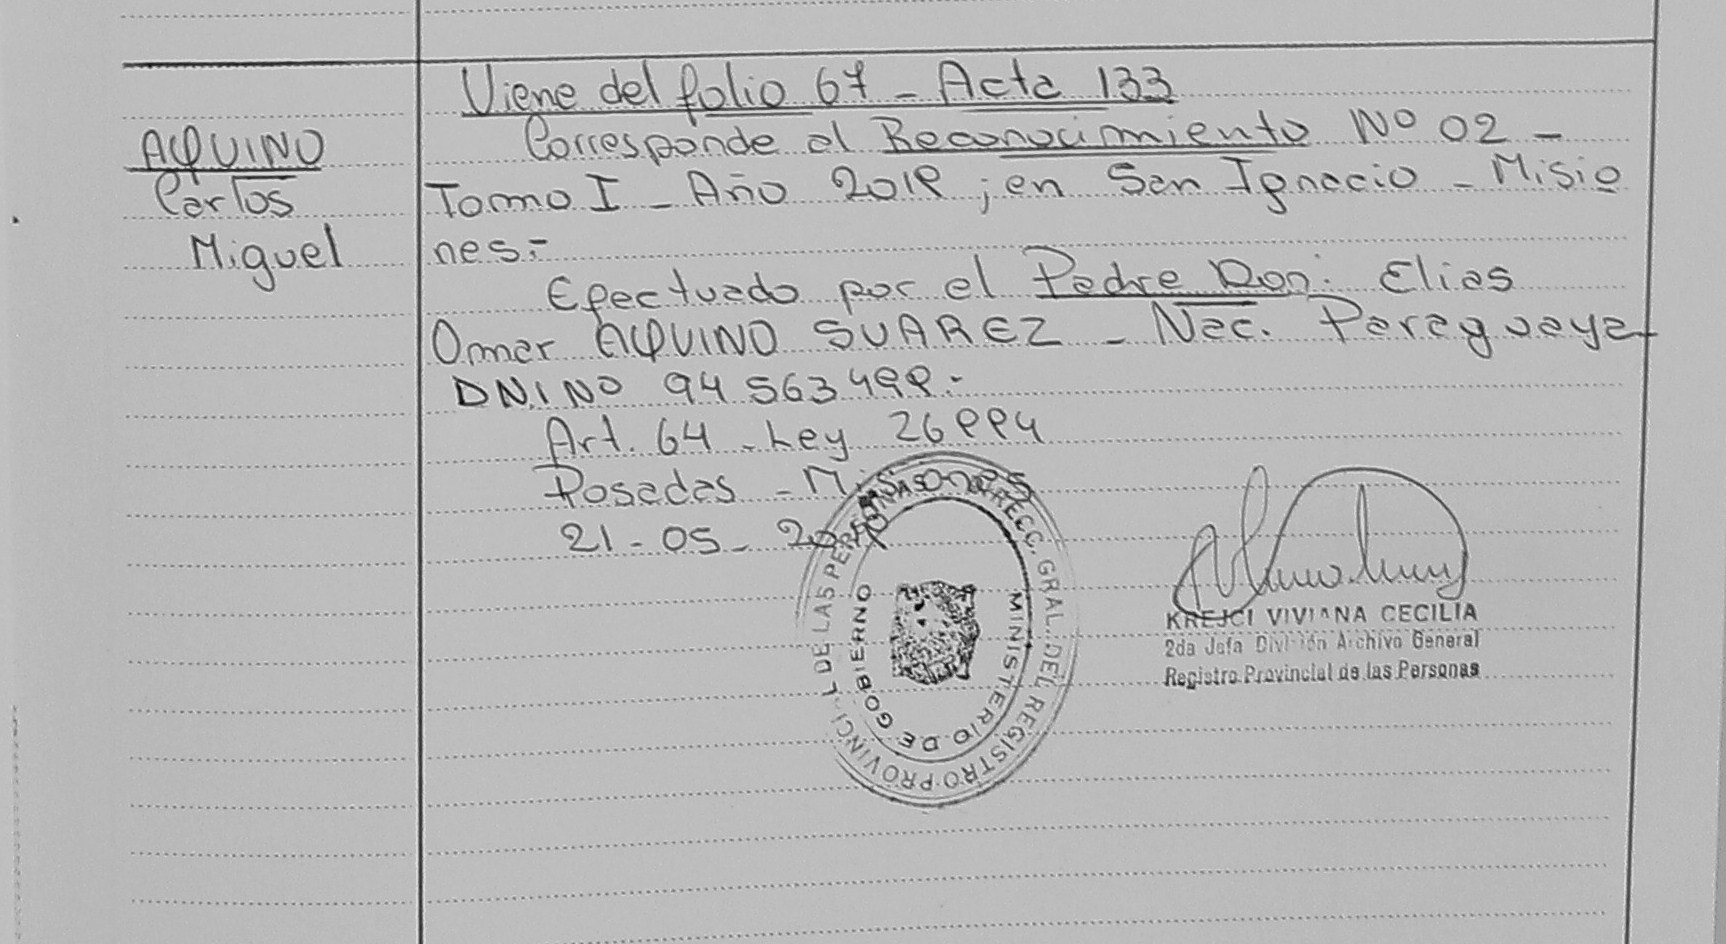 Viene del folio 67 - Acta 133
AQUINO
Carlos
Miguel
Corresponde al Reconocimiento Nº 02 -
Tomo I - Año 2019 ; en San Ignacio - Misio
nes.-
Efectuado por el Padre Don: Elias
Omar AQUINO SUAREZ - Nac. Paraguaya
DNI Nº 94 563 499.-
Art. 64 - Ley 26994
Posadas - Misiones
21 - 05 - 2019
DIRECC. GRAL. DEL REGISTRO PROVINCIAL DE LAS PERSONAS
MINISTERIO DE GOBIERNO
KREJCI VIVIANA CECILIA
2da Jefa División Archivo General
Registro Provincial de las Personas